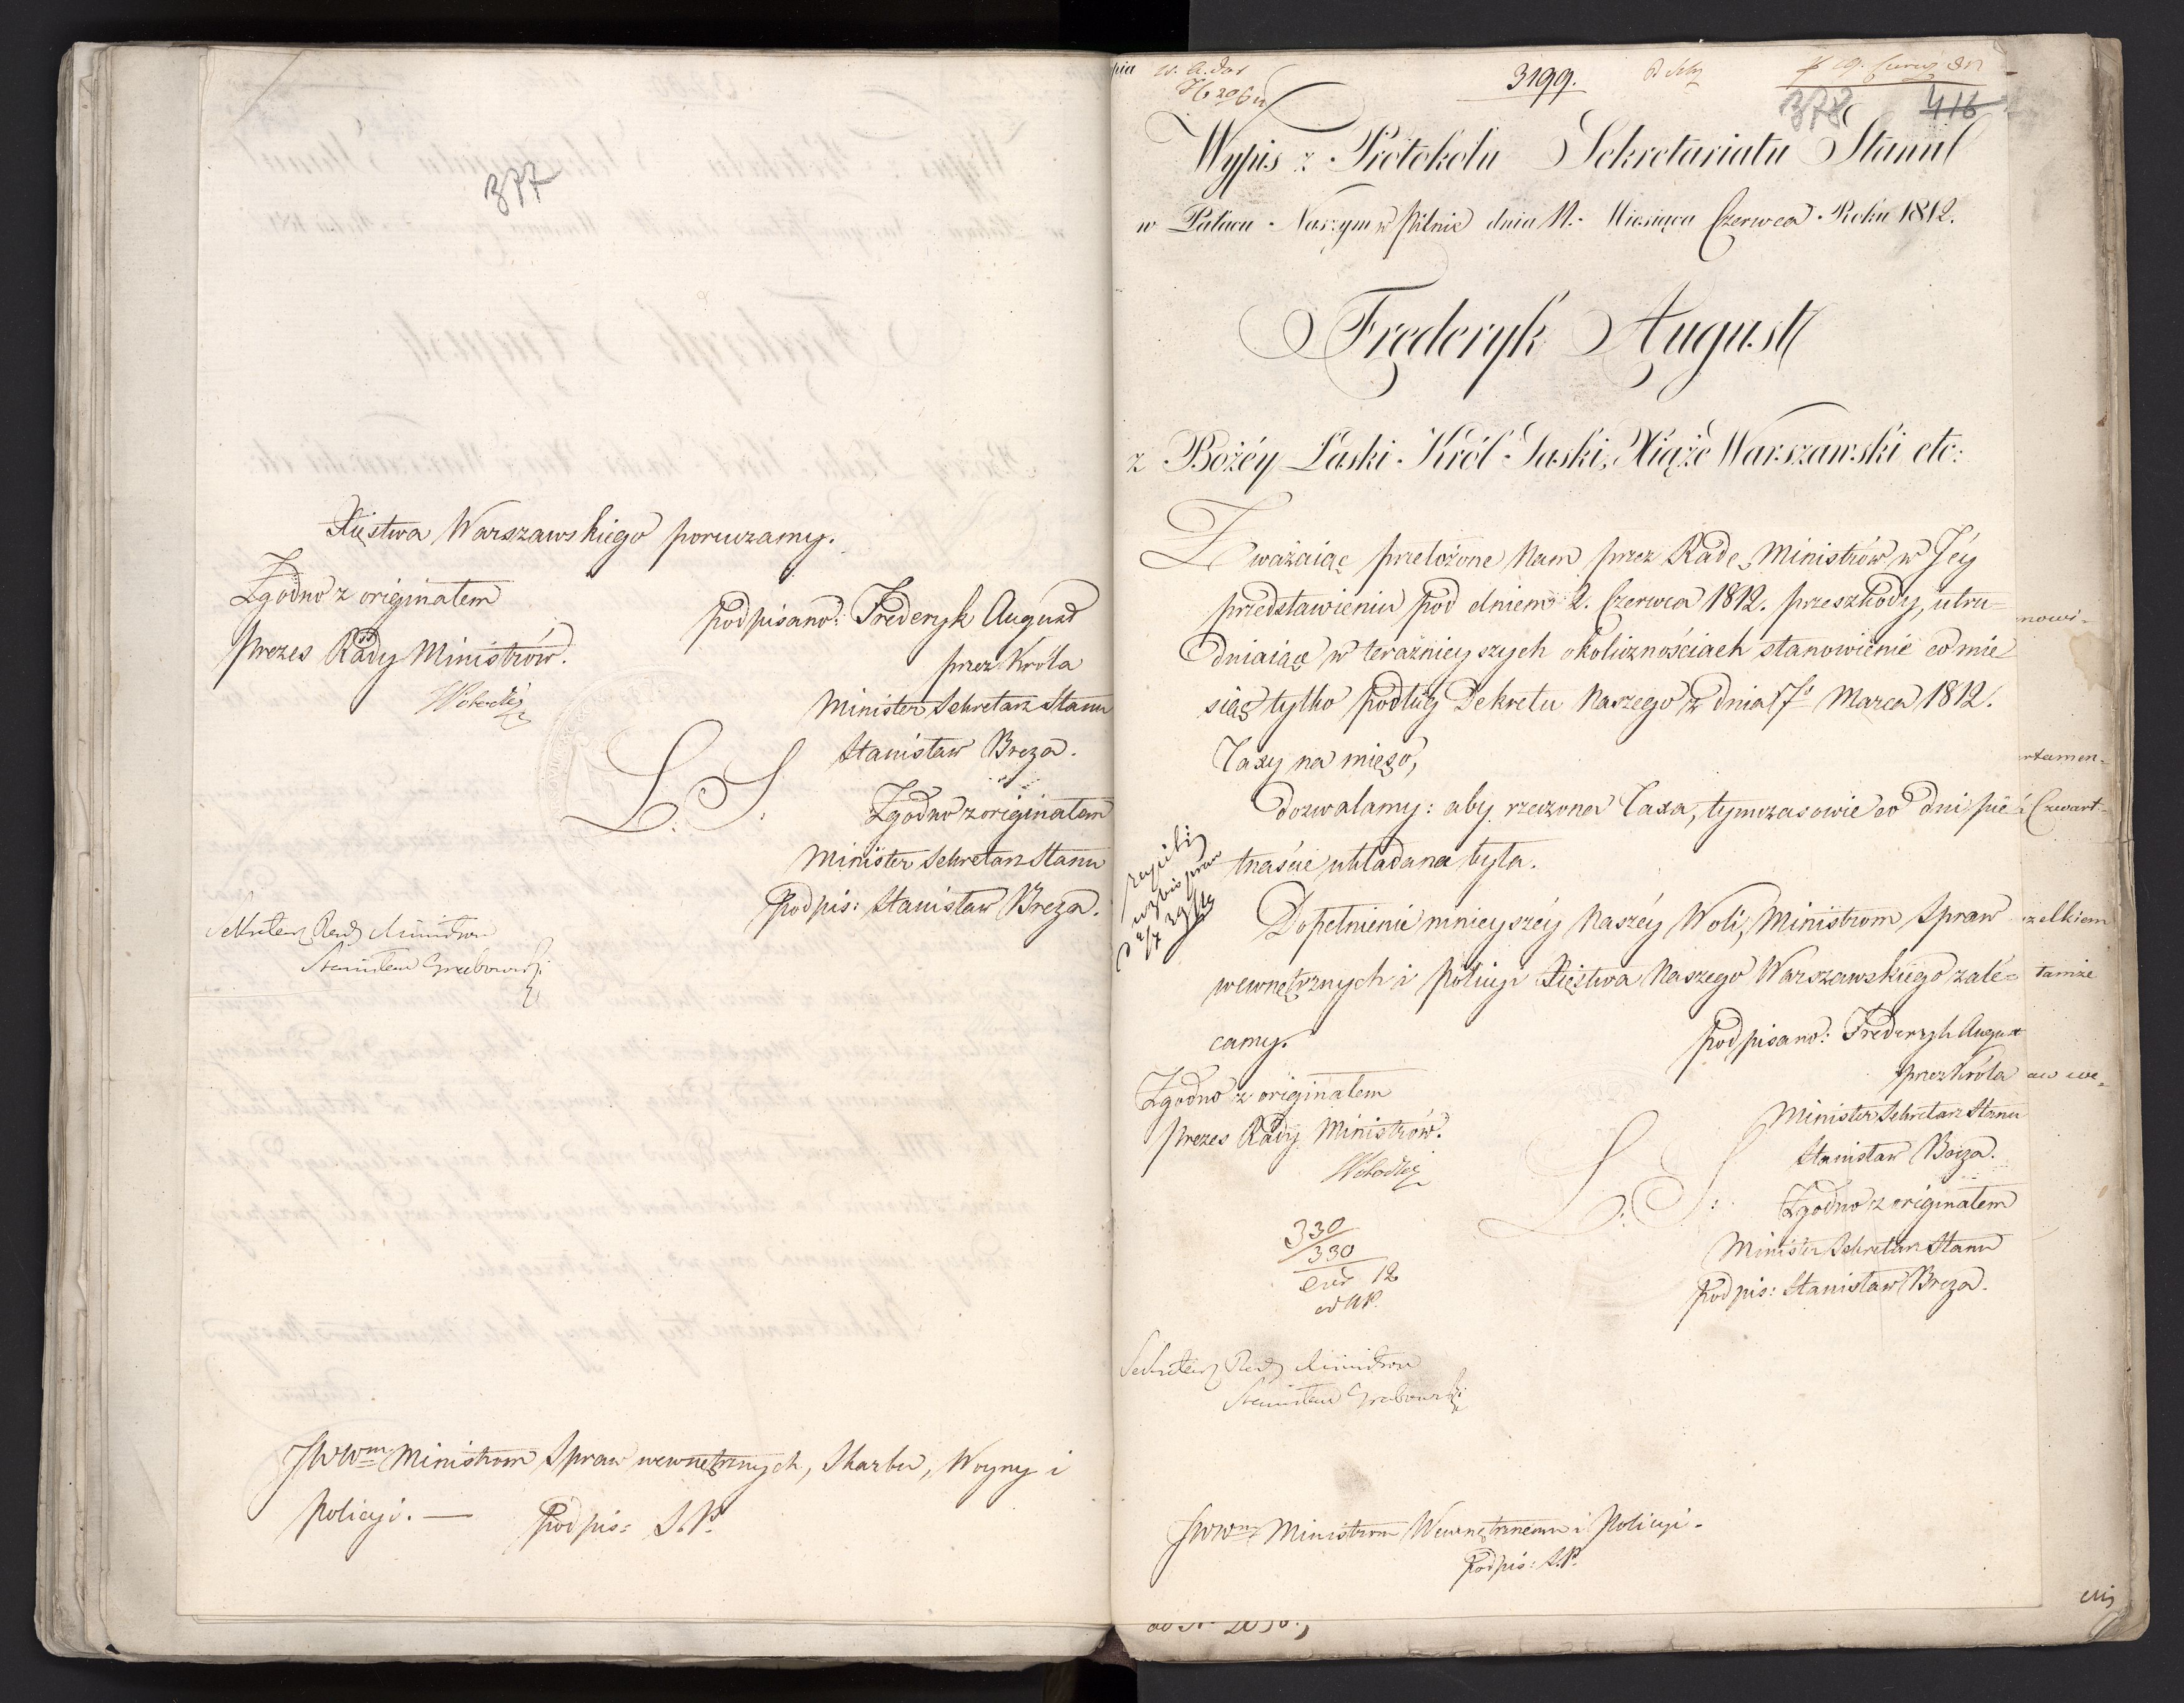 377
Xięstwa Warszawskiego poruczamy.
Zgodno z originałem
Prezes Rady Ministrów.
podpisano: Frederyk August
przez Króla
Minister Sekretarz Stanu
Stanisław Breza.
L. S.
Zgodno z originałem
Minister Sekretarz Stanu
podpis: Stanisław Breza.
Sekretarz Rady Ministrów
Stanisław Grabowski
JWWm Ministrom Spraw wewnętrznych, Skarbu, Woyny i
Policyi. — podpis: S. P.
3199.
378 416
Wypis z Protokołu Sekretariatu Stanu
w Pałacu Naszym w Pilnic dnia 11. Miesiąca Czerwca Roku 1812.
Frederyk August
z Bożéy Łaski Król Saski, Xiąże Warszawski etc:
Zważaiąc przełożone Nam przez Radę Ministrów w Jéy
przedstawieniu pod dniem 2. Czerwca 1812. przeszkody, utru-
dniaiące w teraźnieyszych okolicznościach stanowienie co mie-
siąc tylko podług Dekretu Naszego z dnia 7o Marca 1812.
Taxy na mięso,
dozwalamy: aby rzeczona Taxa, tymczasowie co dni pię-
tnaście układana była.
Dopełnienie ninieyszéy Naszéy Woli, Ministrom Spraw
wewnętrznych i Policyi Xięstwa Naszego Warszawskiego zale-
camy.
podpisano: Frederyk August
przez Króla
Minister Sekretarz Stanu
Stanisław Breza.
Zgodno z originałem
Prezes Rady Ministrów.
L. S.
Zgodno z originałem
Minister Sekretarz Stanu
podpis: Stanisław Breza.
330
330
Sekretarz Rady Ministrów
Stanisław Grabowski
JWWm Ministrom Wewnętrznemu i Policyi.
podpis: S. P.
nowi-
rtamen-
i Czwart-
zelkiem
tamże